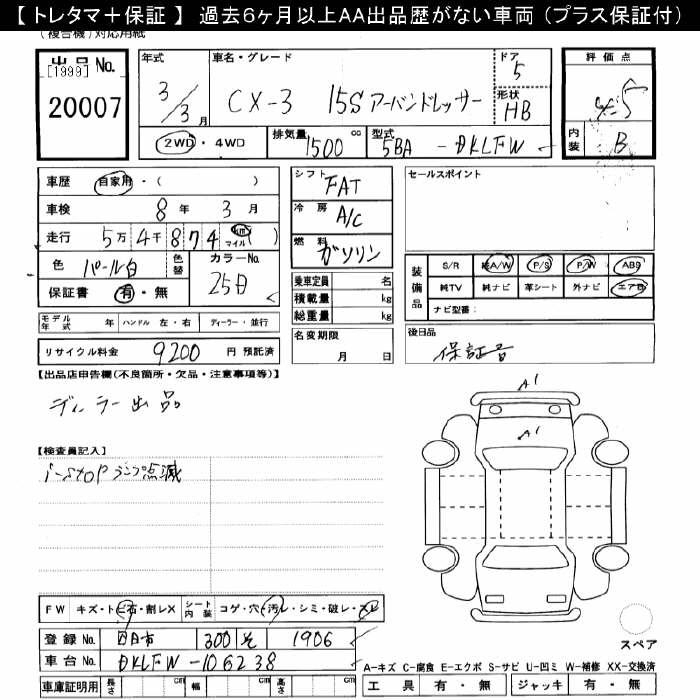 【 トレタマ＋保証 】 過去6ヶ月以上AA出品歴がない車両 (プラス保証付)
(複合機)対応用紙
出品 No.
[1999]
20007
年式
3/3月
車名・グレード
CX-3 15S アーバンドレッサー
ドア
5
形状
HB
2WD・4WD
排気量
1500 cc
型式
5BA - DKLFW
評価点
5
内装
B
車歴 自家用・( )
車検 8年 3月
走行 5万 4千 8 7 4 km マイル ( )
色 パール白
色替
カラーNo.
25D
保証書 有・無
モデル年式 年 ハンドル 左・右 ディーラー・並行
リサイクル料金 9200 円 預託済
シフト
FAT
冷房
A/C
燃料
ガソリン
乗車定員 名
積載量 kg
総重量 kg
名変期限
月 日
セールスポイント
装備品
S/R 純A/W P/S P/W ABS
純TV 純ナビ 革シート 外ナビ エアB
ナビ型番：
後日品
保証書
【出品店申告欄(不良箇所・欠品・注意事項等)】
ディーラー出品
【検査員記入】
i-STOPランプ点滅
A1
A1
FW キズ・トビ石・割レX
シート内装 コゲ・穴・汚レ・シミ・破レ・スレ
登録 No. 四日市 300 そ 1906
車台 No. DKLFW-106238
車庫証明用 長さ cm 幅 cm 高さ cm
スペア
A-キズ C-腐食 E-エクボ S-サビ U-凹ミ W-補修 XX-交換済
工具 有・無 ジャッキ 有・無